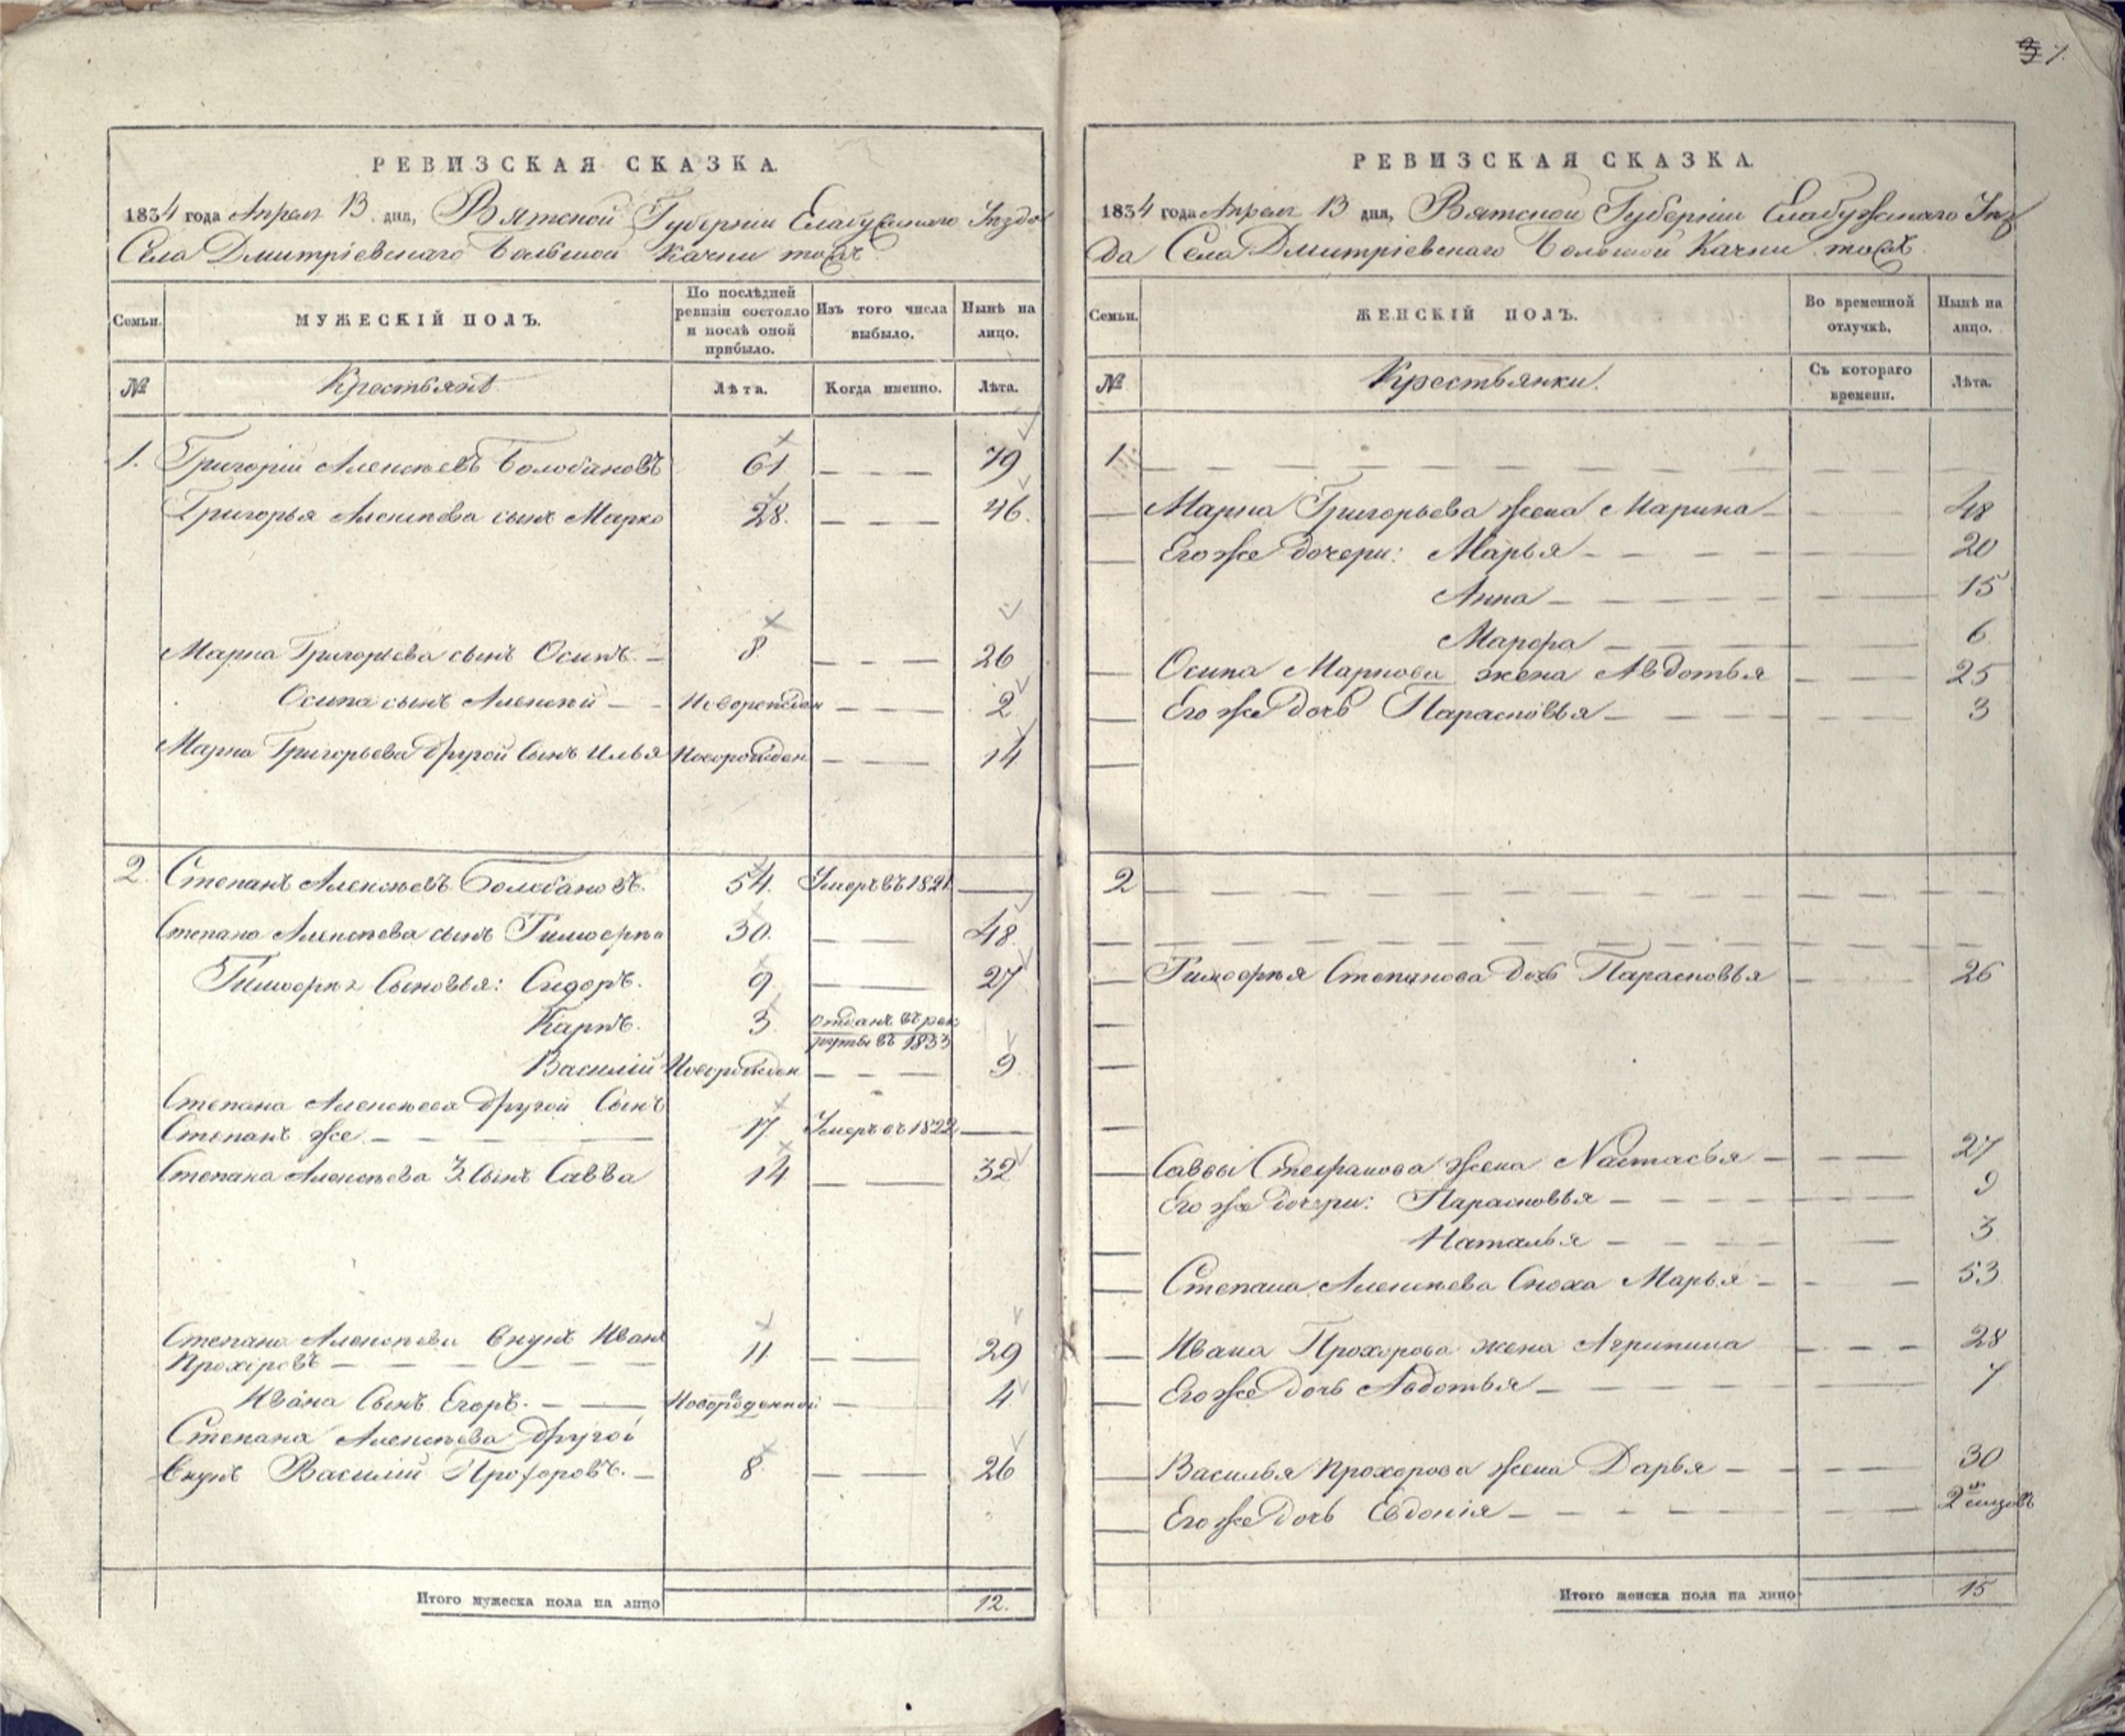 7.
РЕВИЗСКАЯ СКАЗКА.
1834 года Апреля 13 дня, Вятской Губерніи Елабужскаго Уѣзда
Села Дмитріевскаго Большой Качки тожъ
Семьи. МУЖЕСКІЙ ПОЛЪ. По послѣдней ревизіи состояло и послѣ оной прибыло. Изъ того числа выбыло. Нынѣ на лицо.
№ Крестьянѣ Лѣта. Когда именно. Лѣта.
1. Григорій Алексѣевъ Болобановъ 61 — — — 79
Григорья Алексѣева сынъ Марко 28. — — — 46.
Марка Григорьева сынъ Осипъ. — 8. — — — 26
Осипа сынъ Алексѣй — — Новорожден — — — 2
Марка Григорьева другой Сынъ Илья Новорожден — — — 14
2. Степанъ Алексѣевъ Болобановъ. 54. Умеръ въ 1821 —
Степана Алексѣева сынъ Тимоѳѣй 30. — — 48.
Тимоѳѣя Сыновья: Сидоръ. 9. — — 27
Карпъ. 3. отданъ въ рек
руты въ 1833
Василій Новорожден — — — 9.
Степана Алексѣева другой Сынъ
Степанъ же. — — — — 17. Умеръ въ 1822 —
Степана Алексѣева 3. Сынъ Савва 14 — — 32
Степана Алексѣева Внукъ Иванъ
Прохоровъ — — — — — 11. — — 29
Ивана Сынъ Егоръ. — — Новорожденной — 4
Степана Алексѣева другой
Внукъ Василій Прохоровъ. — 8. — — 26
Итого мужеска пола на лицо 12.
РЕВИЗСКАЯ СКАЗКА.
1834 года Апреля 13 дня, Вятской Губерніи Елабужскаго Уѣз
да Села Дмитріевскаго Большой Качки тожъ
Семьи. ЖЕНСКІЙ ПОЛЪ. Во временной отлучкѣ. Нынѣ на лицо.
№ Крестьянки. Съ котораго времени. Лѣта.
1.
Марка Григорьева жена Марина — — — 48
Его же дочери: Марья — — — 20
Анна — — — 15
Марфа — — — 6.
Осипа Маркова жена Авдотья — — 25
Его же дочь Парасковья — — — 3
2
Тимоѳѣя Степанова дочь Парасковья — — 26
Саввы Стефанова жена Настасья — — — 27
Его же дочери: Парасковья — — — 9
Наталья — — — 3
Степана Алексѣева Сноха Марья — — — 53.
Ивана Прохорова жена Агрипина — — — 28
Его же дочь Авдотья — — — 7
Василья Прохорова жена Дарья — — — 30
Его же дочь Евдокія — — — 2хъ
Итого женска пола на лицо 15